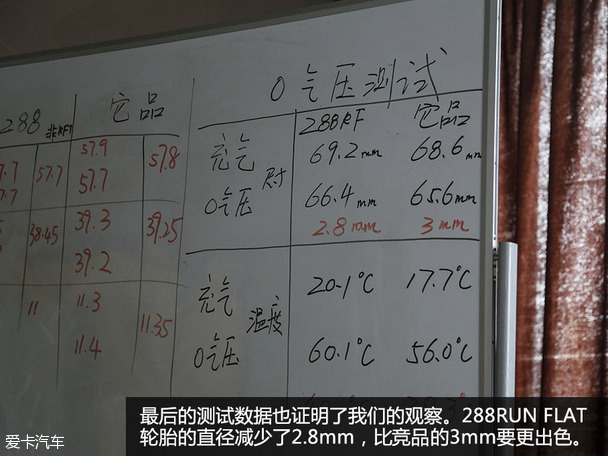 0气压测试
288 非RFT 它品
288RF 它品
充气 69.2mm 68.6mm
尺寸
0气压 66.4mm 65.6mm
2.8mm 3mm
充气 20.1℃ 17.7℃
温度
0气压 60.1℃ 56.0℃
57.9
57.7 57.8
57.7
39.3
38.45 39.25
39.2
11 11.3
11.35
11.4
最后的测试数据也证明了我们的观察。288RUN FLAT
轮胎的直径减少了2.8mm，比竞品的3mm要更出色。
爱卡汽车